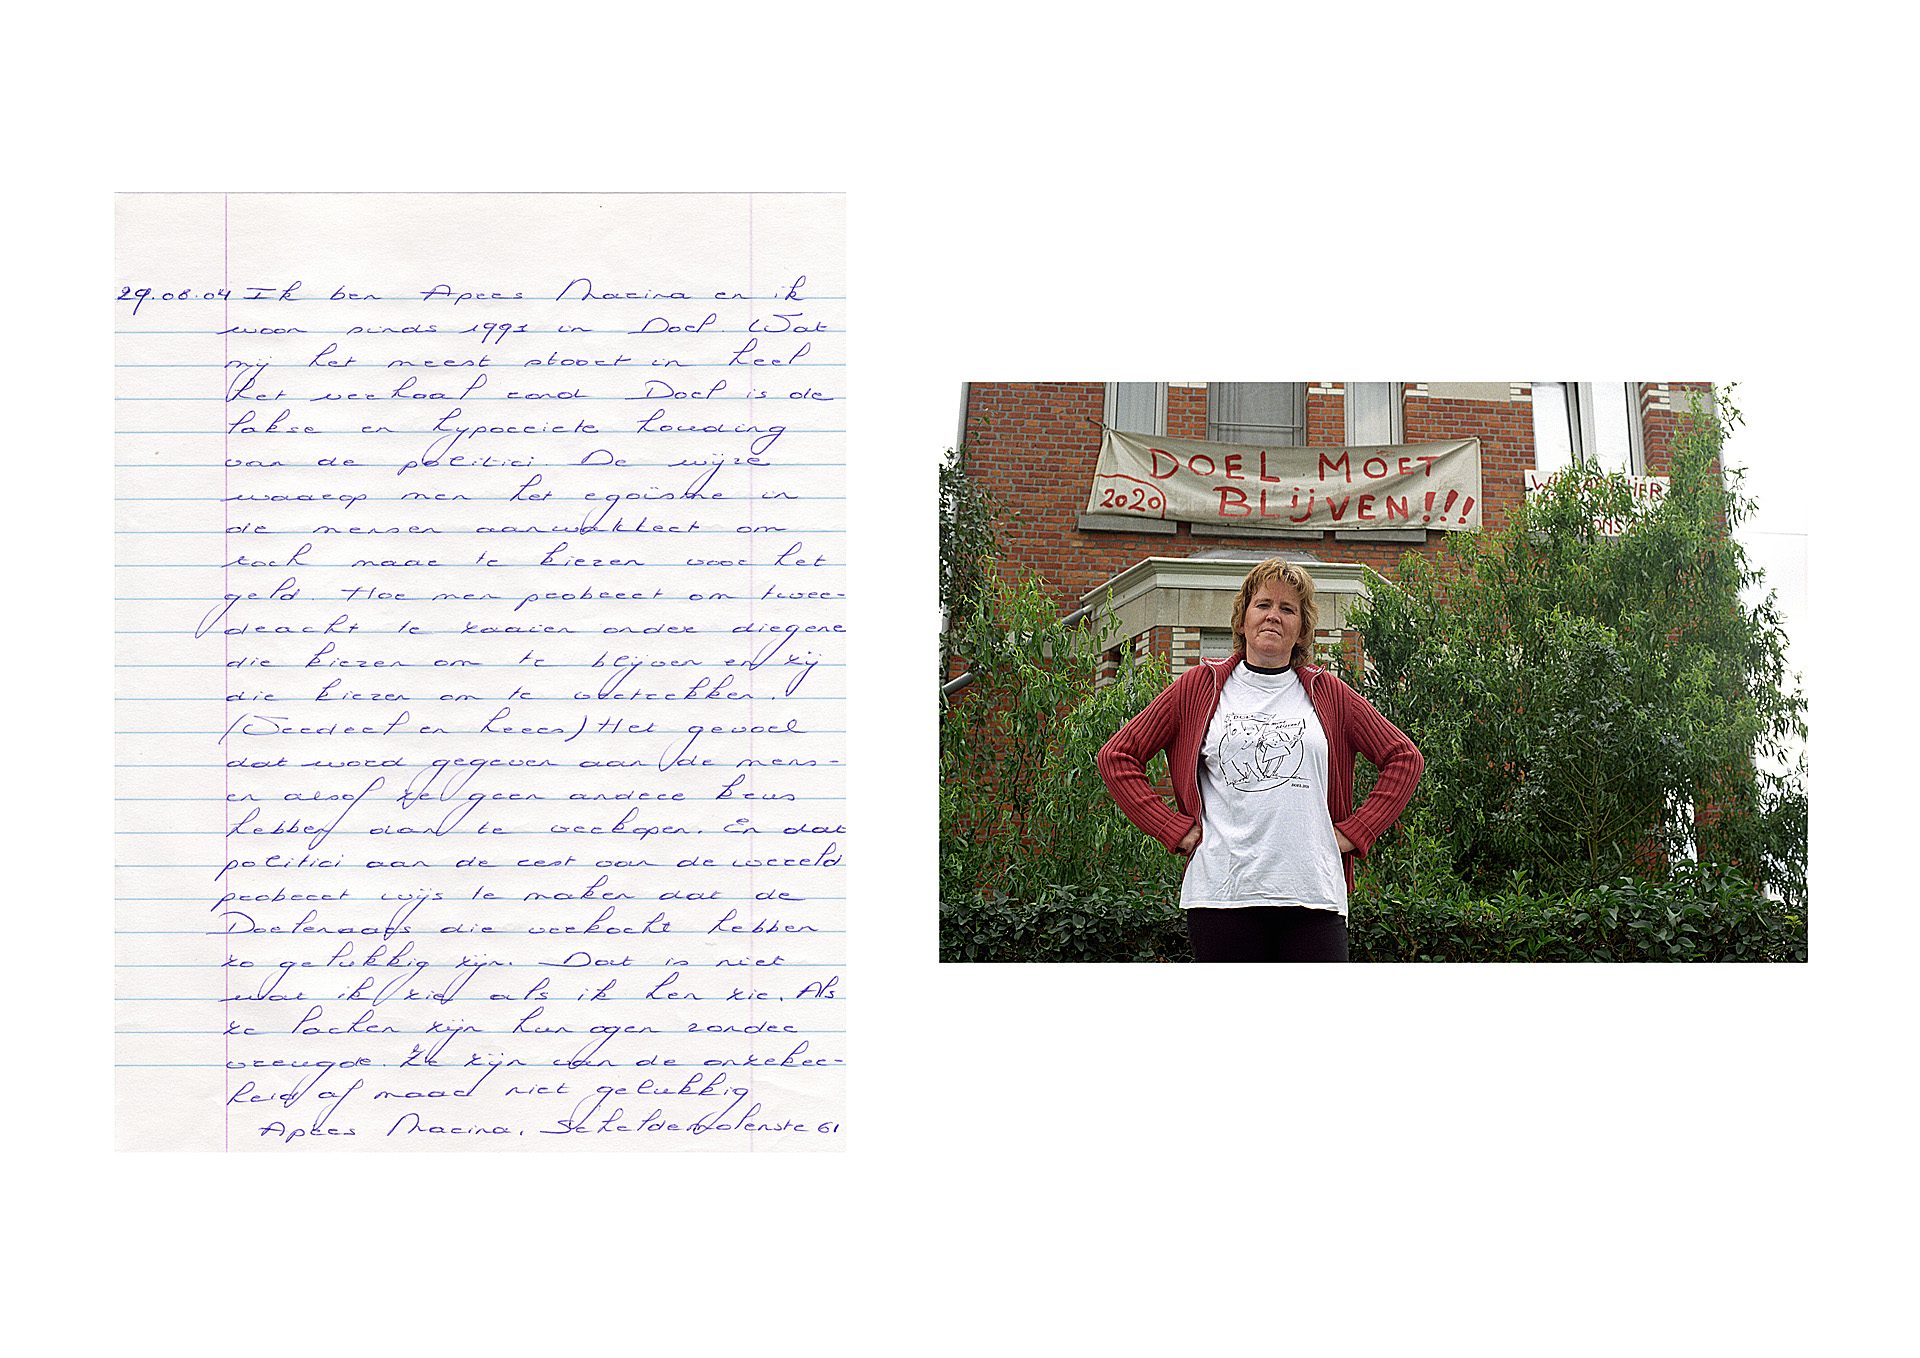 29.08.04 Ik ben Apers Marina en ik
woon sinds 1991 in Doel. Wat
mij het meest stoort in heel
het verhaal rond Doel is de
lakse en hypocriete houding
van de politici. De wijze
waarop men het egoïsme in
de mensen aanwakkert om
toch maar te kiezen voor het
geld. Hoe men probeert om twee-
dracht te zaaien onder diegene
die kiezen om te blijven en zij
die kiezen om te vertrekken.
(Verdeel en heers) Het gevoel
dat word gegeven aan de mens-
en alsof ze geen andere keus
hebben dan te verkopen. En dat
politici aan de rest van de wereld
probeert wijs te maken dat de
Doelenaars die verkocht hebben
zo gelukkig zijn. Dat is niet
wat ik zie als ik hen zie. Als
ze lachen zijn hun ogen zonder
vreugde. Ze zijn van de onzeker-
heid af maar niet gelukkig
Apers Marina, Scheldemolenstr 61
DOEL MOET
2020 BLIJVEN!!!
HIER
ONS
DOEL
DOEL 2020